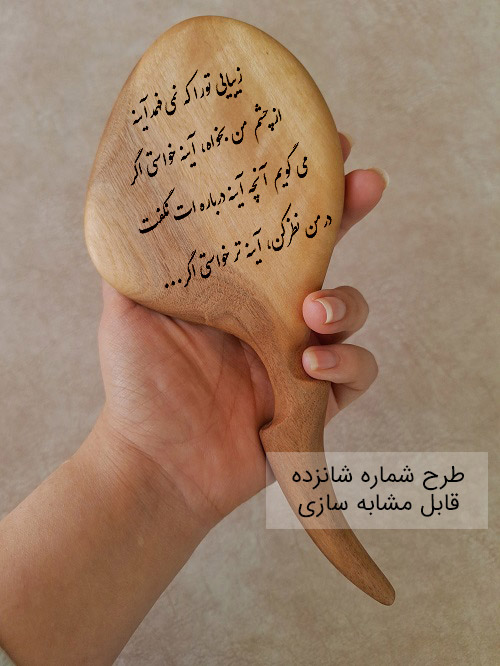 زیبایی تو را که نمی فهمد آینه
از چشم من بخواه، آینه خواستی اگر
می گویم آنچه آینه درباره ات نگفت
در من نظر کن، آینه تر خواستی اگر...
طرح شماره شانزده
قابل مشابه سازی